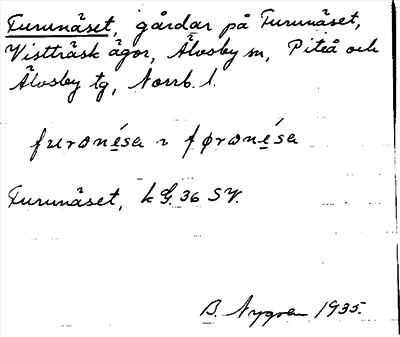 Furunäset, gårdar på Furunäset,
Vistträsk ägor, Älvsby sn, Piteå och
Älvsby tg, Norrb. l.
furɷnésa ɿ førɷnésa
Furunäset, k G. 36 SV.
B. Nygren 1935.